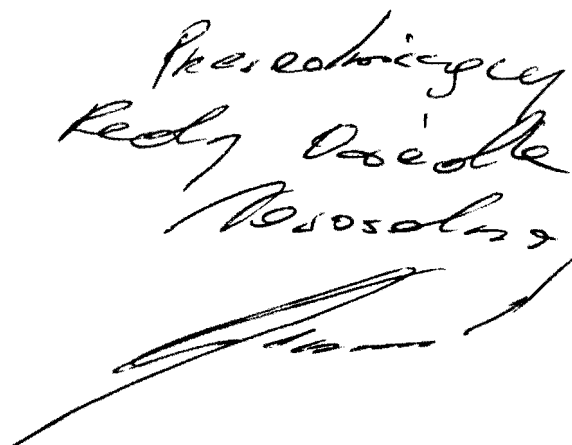 Przewodniczący
Rady Osiedla
Nowosolna